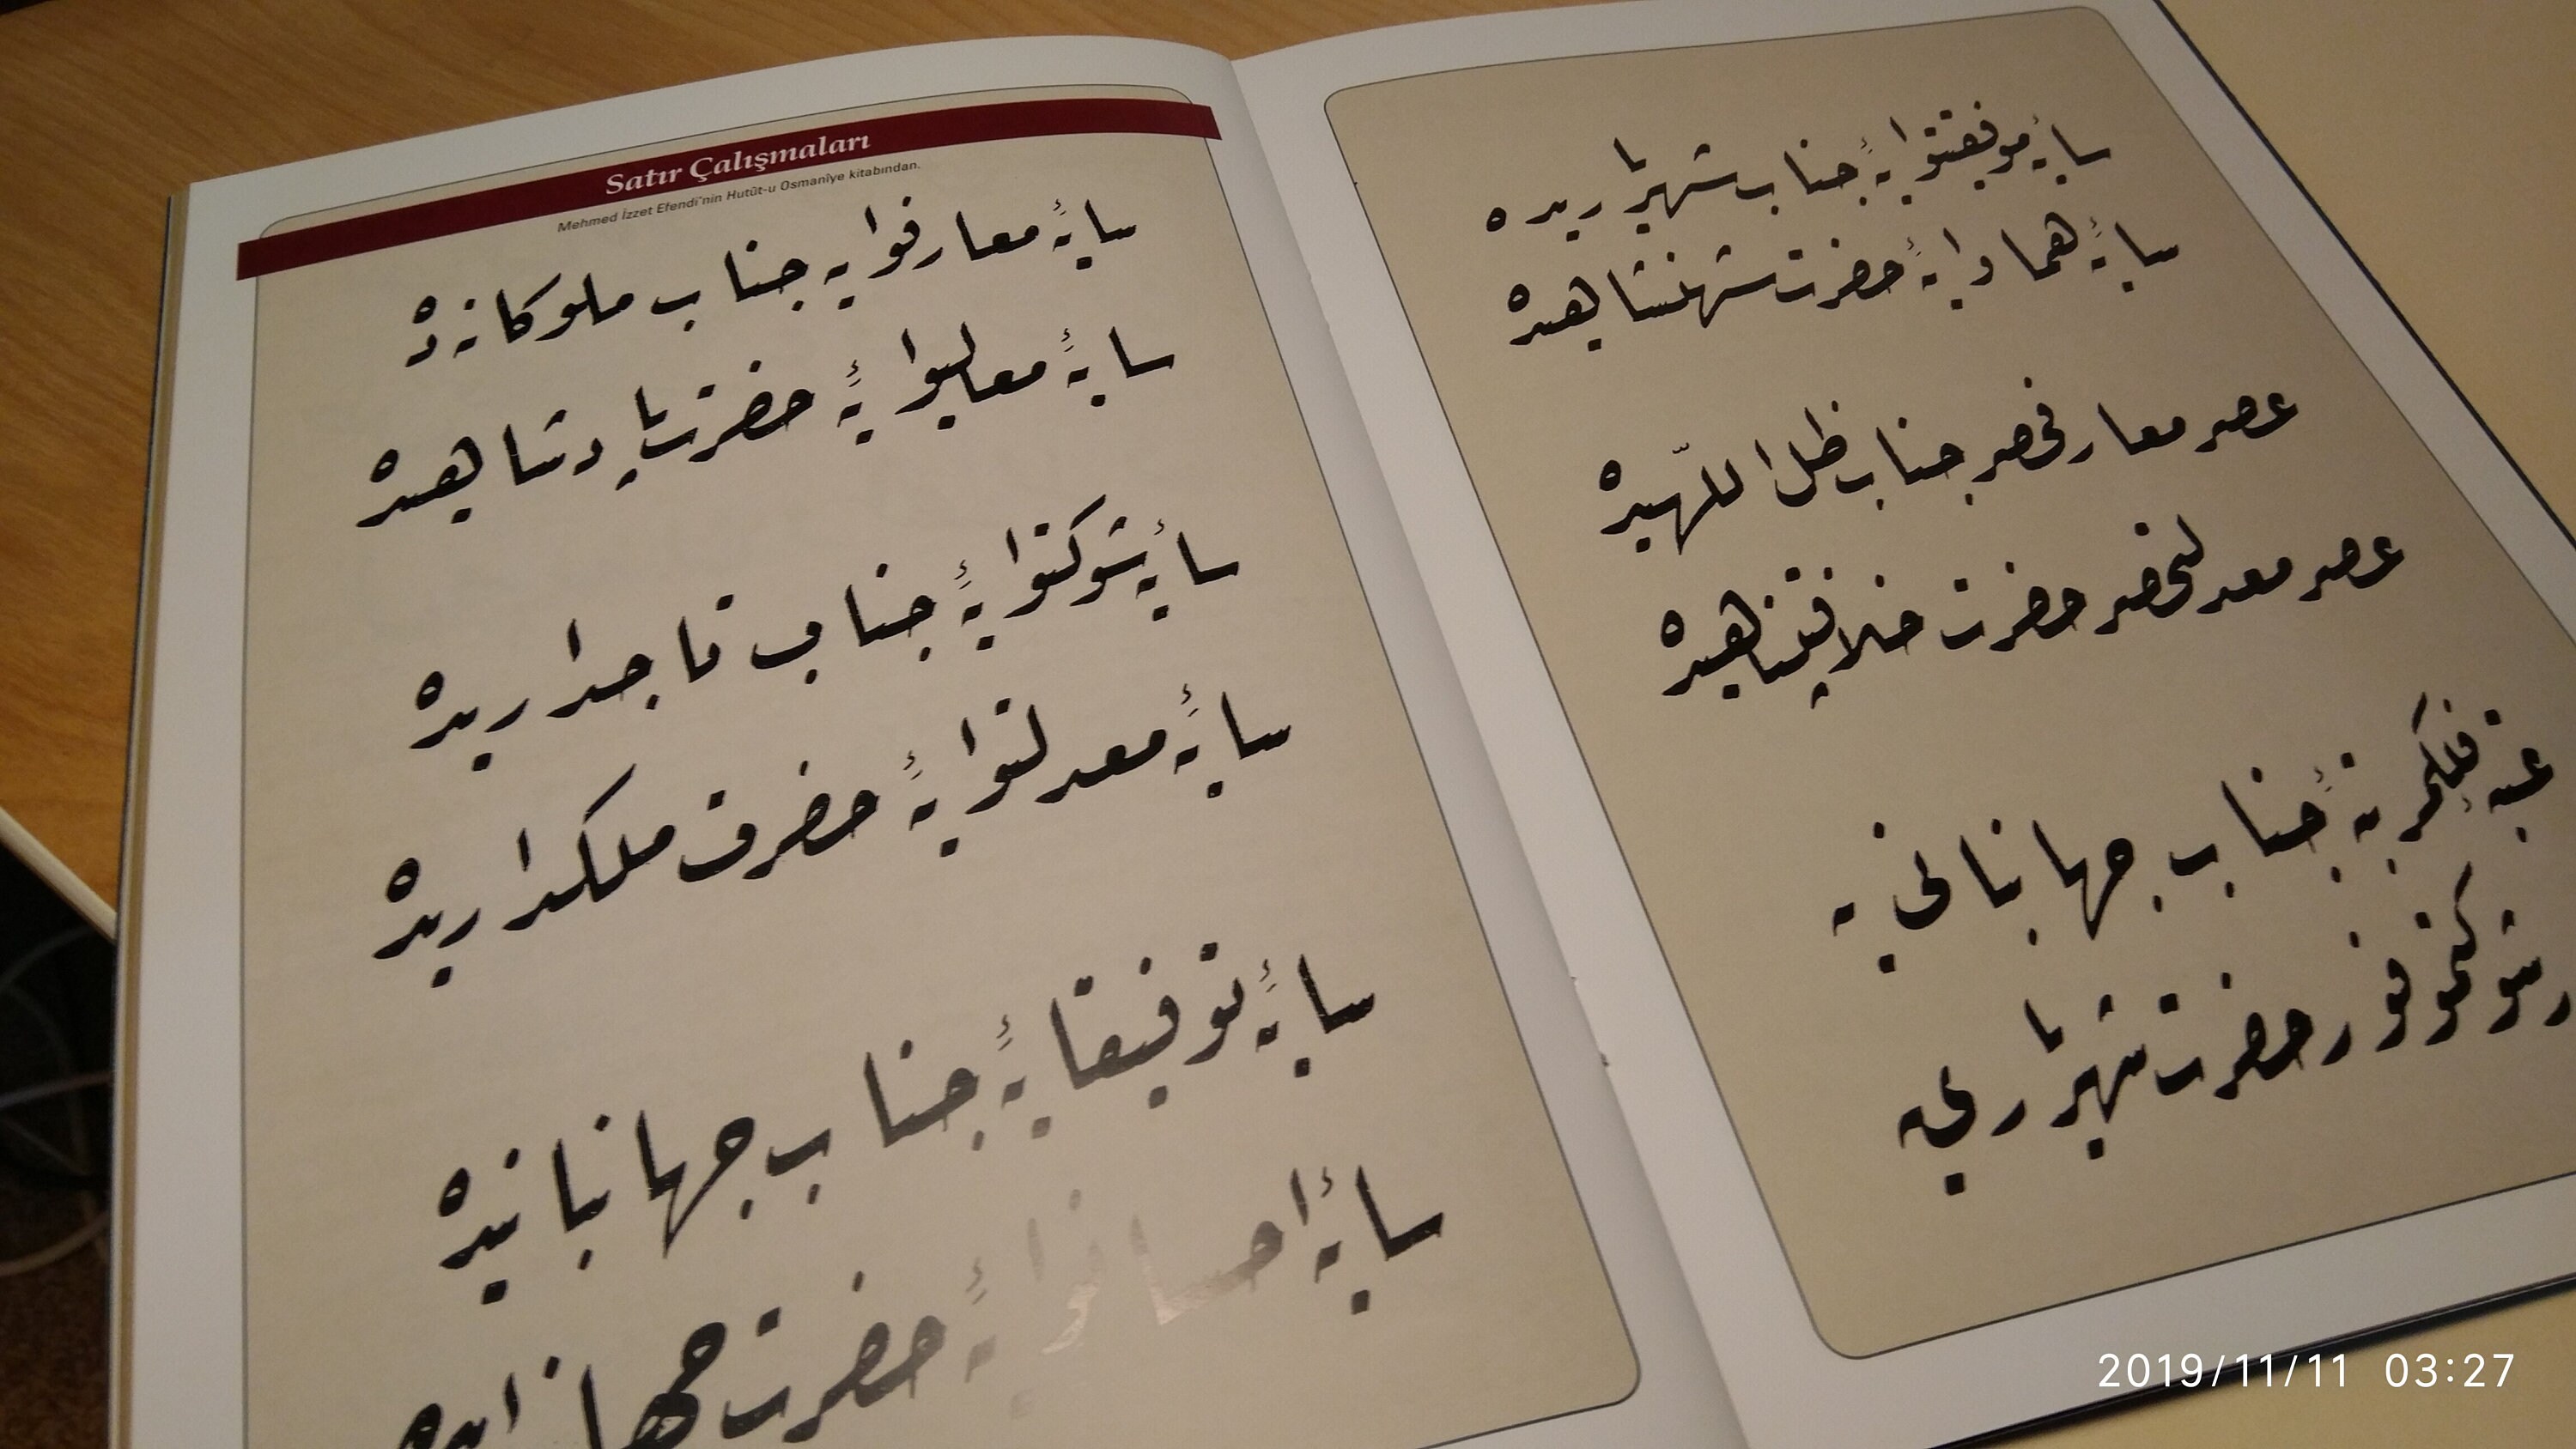 Satır Çalışmaları
Mehmed İzzet Efendi'nin Hutût-u Osmanîye kitabından.
سایۀ معارفوایه جناب ملوکانه ده
سایۀ معالیوایۀ حضرت پادشاهیده
سایۀ شوکتوایۀ جناب تاجداریده
سایۀ معدلتوایۀ حضرت ملکداریده
سایۀ توفیقایۀ جناب جهانبانیده
سایۀ احسانوایۀ حضرت
سایۀ موفقیتوایۀ جناب شهریاریده
سایۀ همادایۀ حضرت شهنشاهیده
عصر معارفحصر جناب ظل اللّهیده
عصر معدلتحصر حضرت خلافتپناهیده
عتبۀ فلکمرتبۀ جناب جهانبانی یه
شوکتموفور حضرت شهریاری یه
2019/11/11 03:27